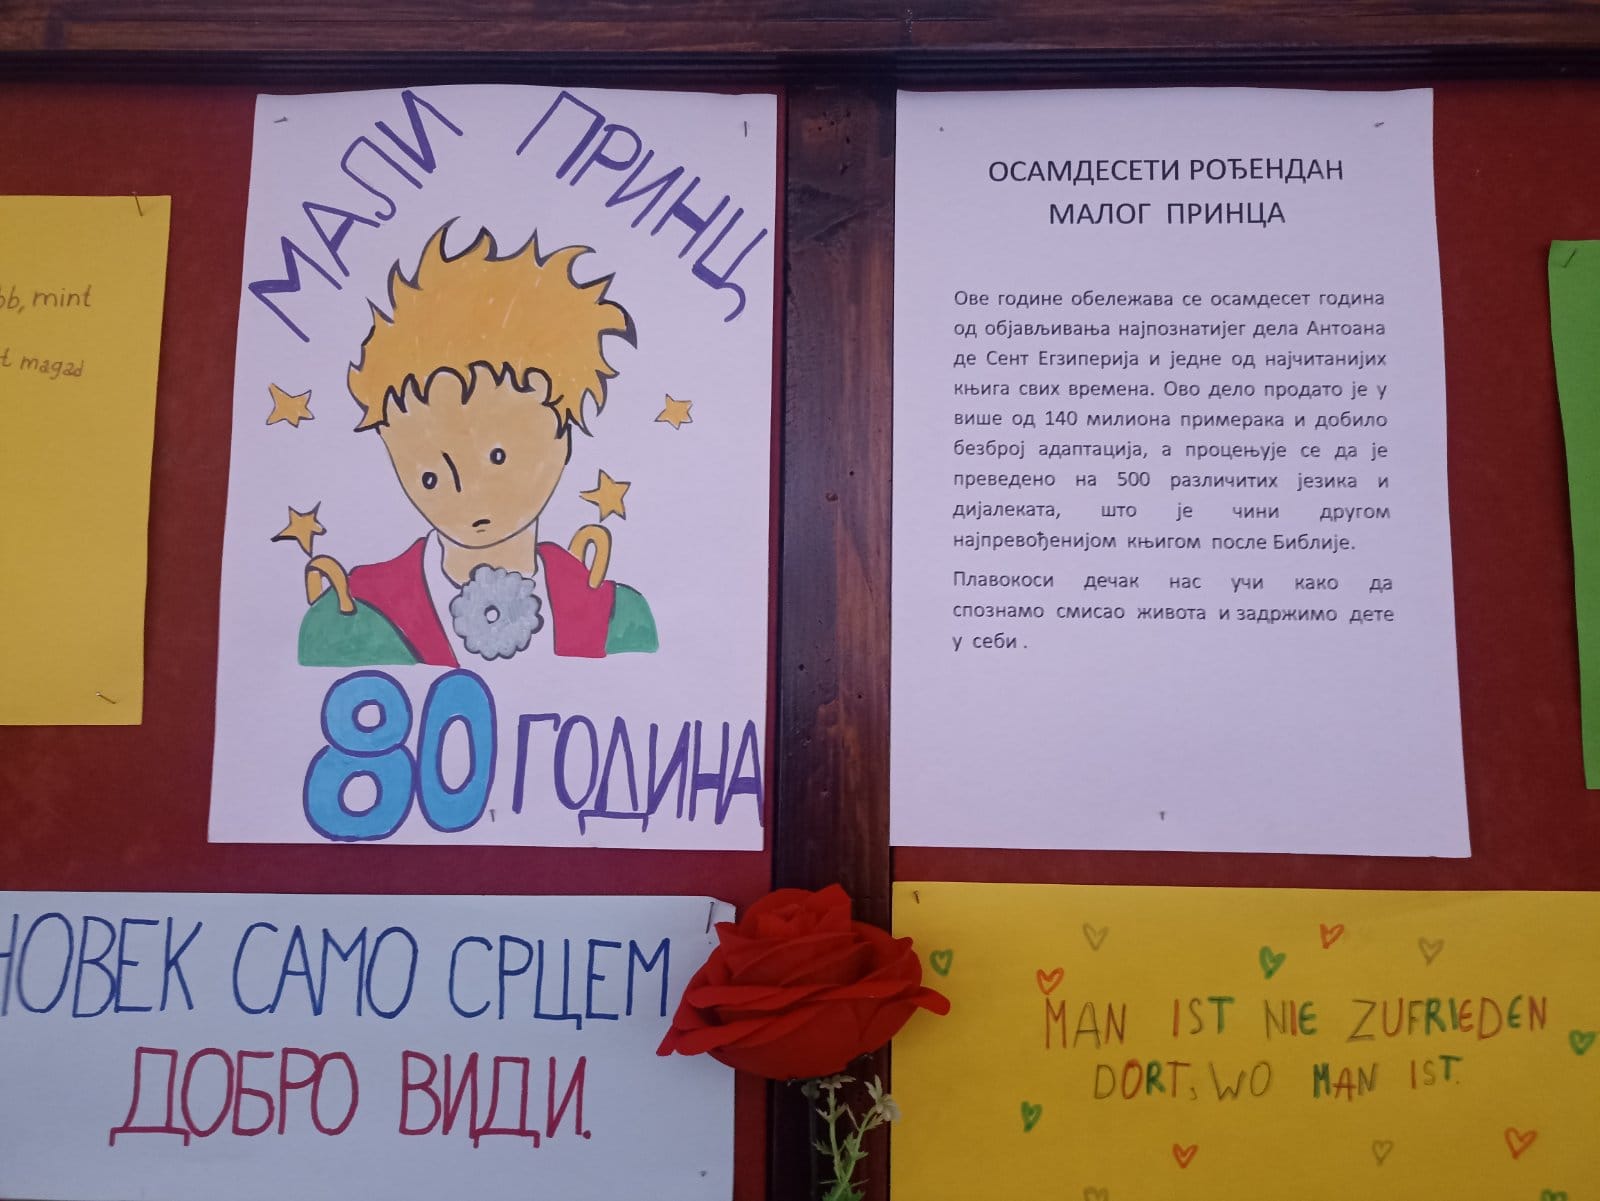 mint
magad
МАЛИ ПРИНЦ
80 ГОДИНА
ОСАМДЕСЕТИ РОЂЕНДАН
МАЛОГ ПРИНЦА
Ове године обележава се осамдесет година
од објављивања најпознатијег дела Антоана
де Сент Егзиперија и једне од најчитанијих
књига свих времена. Ово дело продато је у
више од 140 милиона примерака и добило
безброј адаптација, а процењује се да је
преведено на 500 различитих језика и
дијалеката, што је чини другом
најпревођенијом књигом после Библије.
Плавокоси дечак нас учи како да
спознамо смисао живота и задржимо дете
у себи .
САМО СРЦЕМ
ДОБРО ВИДИ.
MAN IST NIE ZUFRIEDEN
DORT, WO MAN IST.